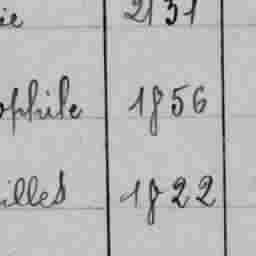 ie 2131
ophile 1856
illes 1822